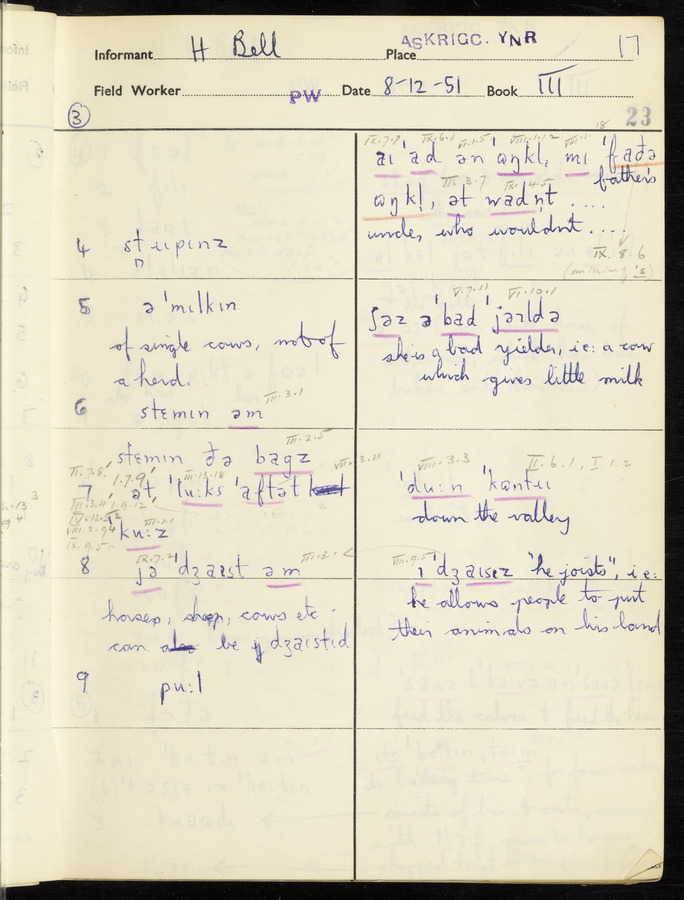 Informant H Bell Place ASKRIGG. YNR 17
Field Worker PW Date 8-12-51 Book III
③ 23
4 strɪpɪnz
5 ə 'mɪlkɪn
of single cows, not of
a herd.
III.3.1
6 stɛmɪn əm
III.2.5
stɛmɪn ðə bagz
III.7.8, I.7.9, III.13.18 VII.3.11
7 at, 'lu:ks 'aftət
III.3.4, I.9.12,
ku:z
IX.9.5
8 jə 'dʒaɪst əm III.3.1
horses, sheep, cows etc
can be dʒaɪstɪd
9 pu:l
IX.7.7 IX.6.1 VI.1.5 VIII.1.12 VIII.1. 18
aɪ 'ad ən 'ʊŋkl, mɪ 'faðə
father's
III.3.7 IX.4.5
ʊŋkl, ət wadn̩t ....
uncle, who wouldn't ....
IX.8.6
V.7.11 VI.10.1
ʃəz ə 'bad 'jəɪldə
she is a bad yielder, ie: a cow
which gives little milk
VIII.3.3 II.6.1, I.1.2
'du:n 'kʊntrɪ
down the valley
VIII.9.5
ɪ 'dʒaɪsɪz "he joists", ie:
he allows people to put
their animals on his land